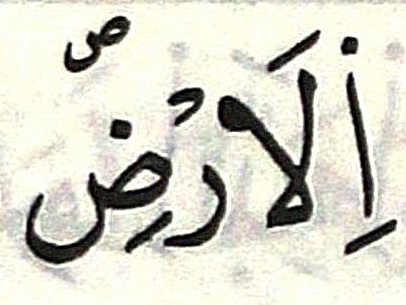 اِ۬لَارْضِۖ